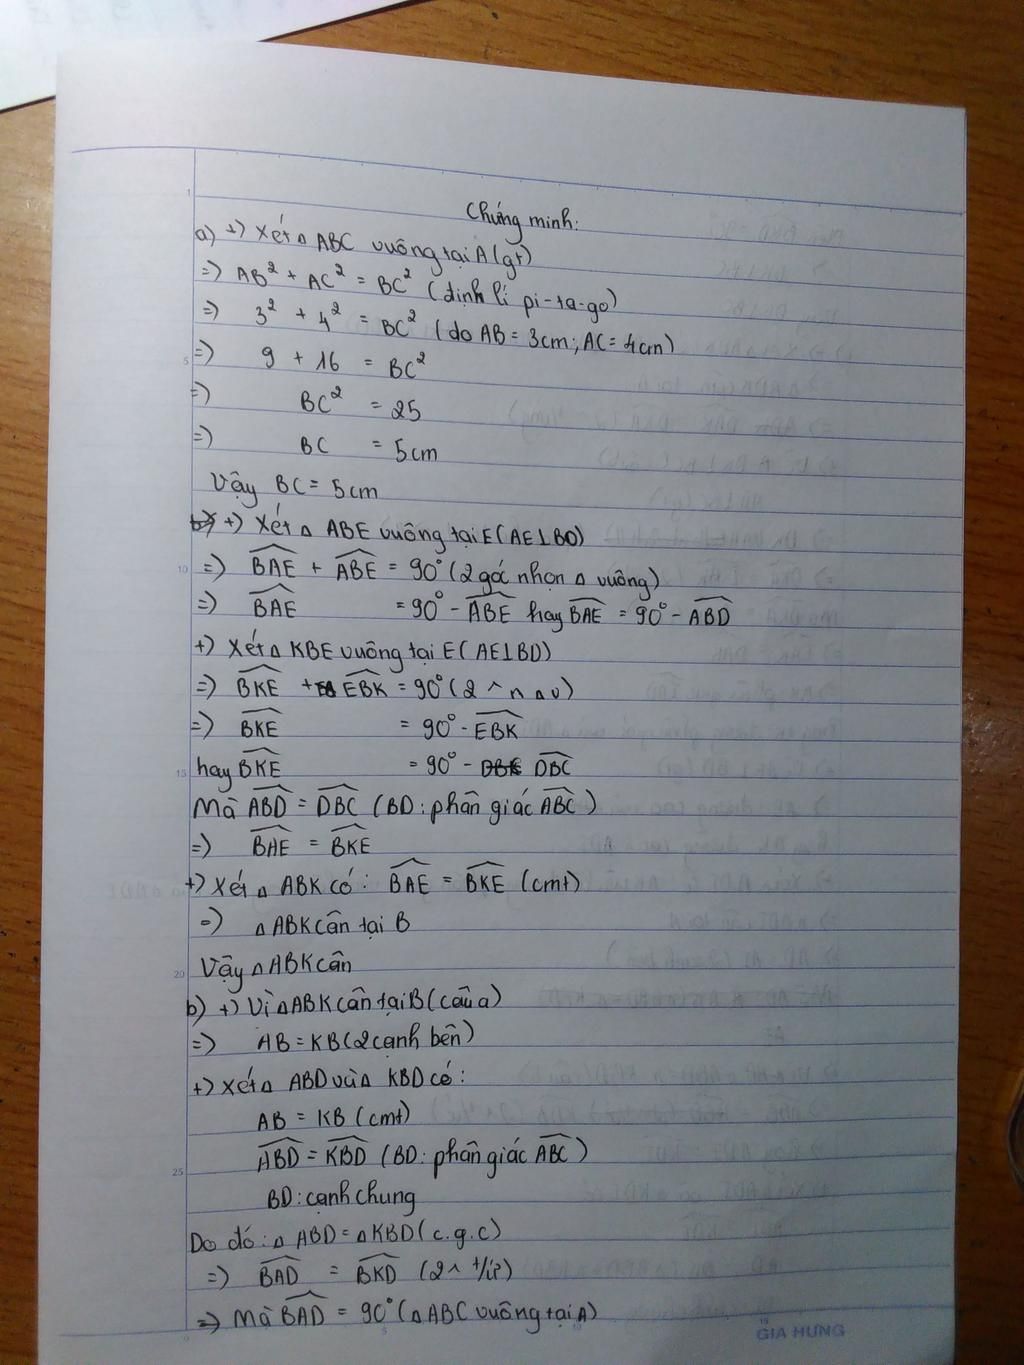 Chứng minh:
a) +) Xét △ ABC vuông tại A (gt)
=) AB² + AC² = BC² (định lí pi-ta-go)
=) 3² + 4² = BC² (do AB = 3cm; AC = 4cm)
=) 9 + 16 = BC²
=) BC² = 25
=) BC = 5cm
Vậy BC = 5cm
+) Xét △ ABE vuông tại E (AE⊥BD)
=) BAE + ABE = 90° (2 góc nhọn △ vuông)
=) BAE = 90° - ABE hay BAE = 90° - ABD
+) Xét △ KBE vuông tại E (AE⊥BD)
=) BKE + EBK = 90° (2 ^ n △ v)
=) BKE = 90° - EBK
hay BKE = 90° - DBC
Mà ABD = DBC (BD: phân giác ABC)
=) BAE = BKE
+) Xét △ ABK có: BAE = BKE (cmt)
=) △ ABK cân tại B
Vậy △ ABK cân
b) +) Vì △ ABK cân tại B (câu a)
=) AB = KB (2 cạnh bên)
+) Xét △ ABD và △ KBD có:
AB = KB (cmt)
ABD = KBD (BD: phân giác ABC)
BD: cạnh chung
Do đó: △ ABD = △ KBD (c.g.c)
=) BAD = BKD (2 ^ t/ứ)
=) Mà BAD = 90° (△ ABC vuông tại A)
GIA HUNG